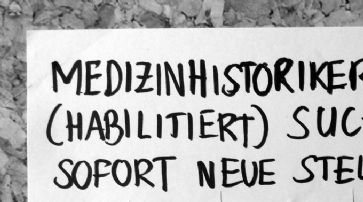 MEDIZINHISTORIKER
(HABILITIERT) SUC
SOFORT NEUE STEL